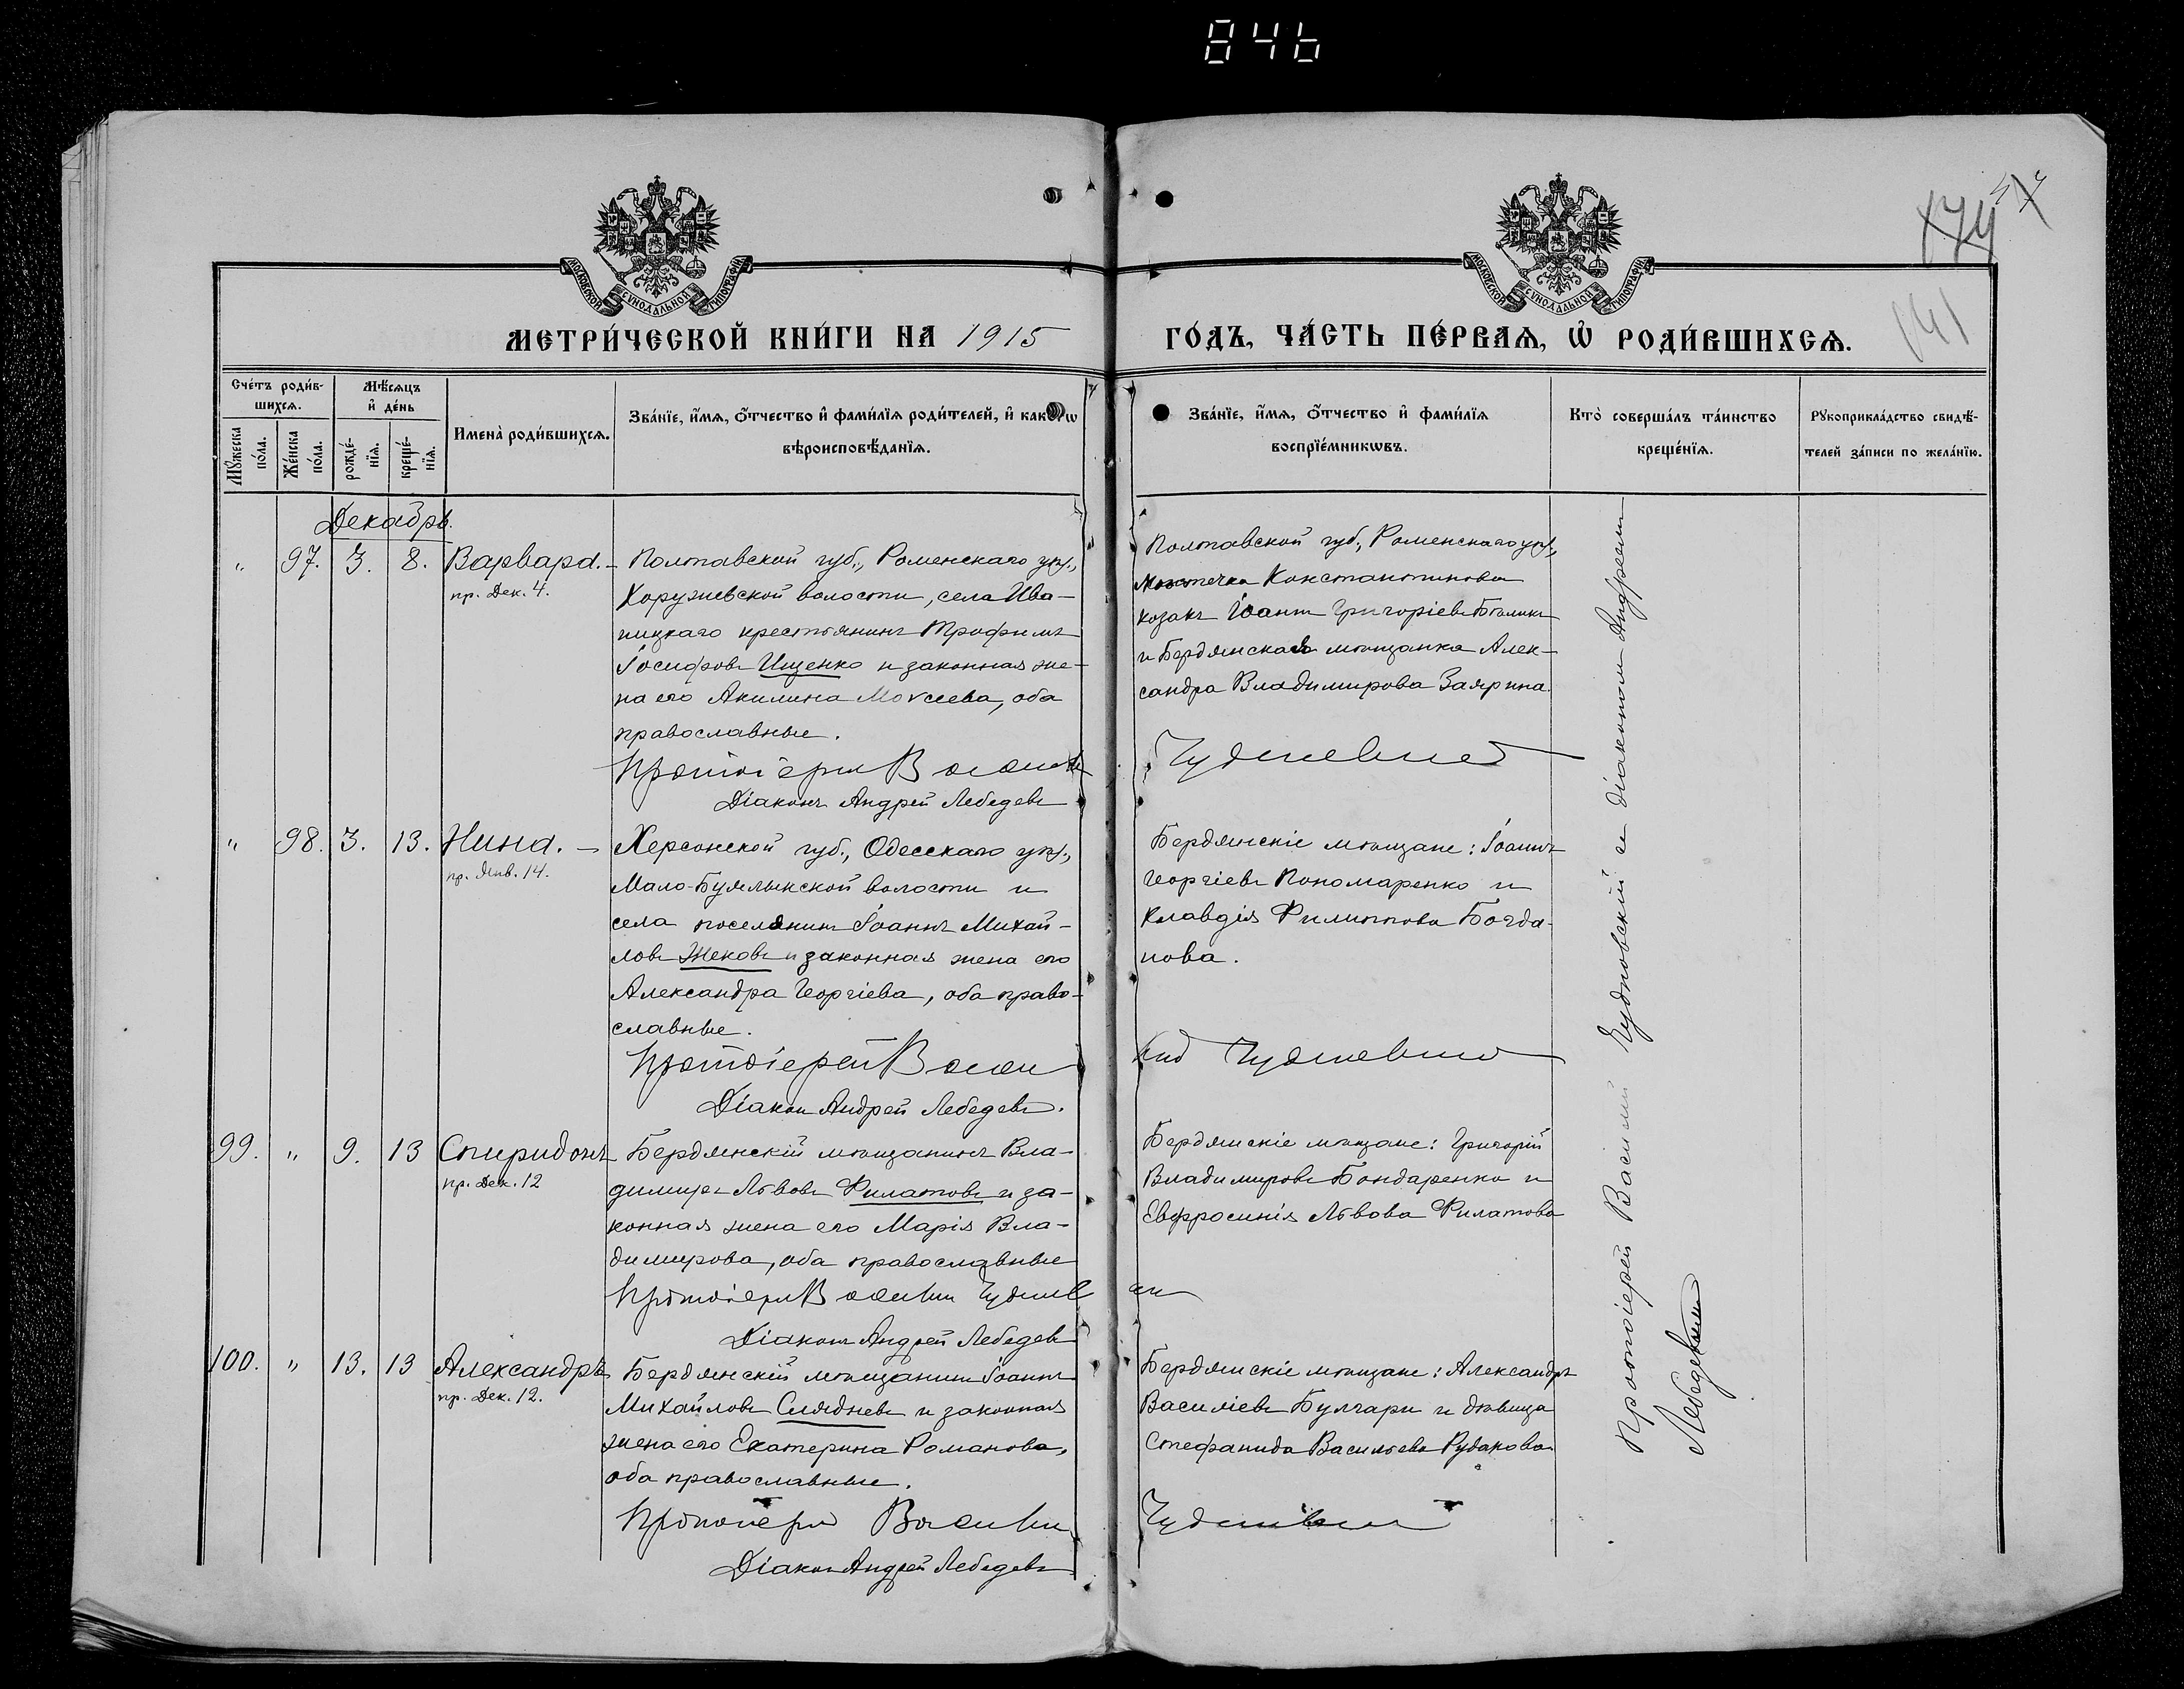 846
174
141
МОСКОВСКОЙ СУНОДАЛЬНОЙ ТИПОГРАФІИ
МОСКОВСКОЙ СУНОДАЛЬНОЙ ТИПОГРАФІИ
МЕТРИ́ЧЕСКОЙ КНИ́ГИ НА 1915
ГО́ДЪ, ЧА́СТЬ ПЕ́РВАѦ, Ѡ҆ РОДИ́ВШИХСѦ.
Сче́тъ роди́в-
шихсѧ.
Мѣ́сѧцъ
и҆ де́нь
Мꙋ́жеска
по́ла.
Же́нска
по́ла.
рожде́-
нїѧ.
креще́-
нїѧ.
Имена̀ роди́вшихсѧ.
Зва́нїе, и҆́мѧ, ѻ҆́тчество и҆ фами́лїѧ роди́телей, и҆ како́гѡ
вѣроисповѣ́данїѧ.
Зва́нїе, и҆́мѧ, ѻ҆́тчество и҆ фами́лїѧ
воспрїе́мникѡвъ.
Кто̀ соверша́лъ та́инство
креще́нїѧ.
Рꙋкоприкла́дство свидѣ́-
телей за́писи по жела́нїю.
Декабрь.
" 97. 3. 8. Варвара. –
пр. Дек. 4.
Полтавской губ., Роменскаго уѣз.,
Хоружевской волости, села Ива-
ницкаго крестьянинъ Трофимъ
Іосифовъ Ищенко и законная же-
на его Акилина Моисеева, оба
православные.
Протоіерей Василій
Діаконъ Андрей Лебедевъ
Полтавской губ., Роменскаго уѣз.,
мѣстечка Константинова
козакъ Іоаннъ Григоріевъ
и Бердянская мѣщанка Алек-
сандра Владимирова Заярина.
Чудновскій
" 98. 3. 13. Нина. –
пр. Янв. 14.
Херсонской губ., Одесскаго уѣз.,
Мало-Буялыкской волости и
села поселянинъ Іоаннъ Михай-
ловъ Жековъ и законная жена его
Александра Георгіева, оба право-
славные.
Протоіерей Васи
Діаконъ Андрей Лебедевъ.
Бердянскіе мѣщане: Іоаннъ
Георгіевъ Пономаренко и
Клавдія Филиппова Богда-
нова.
лій Чудновскій
99. " 9. 13 Спиридонъ
пр. Дек. 12
Бердянскій мѣщанинъ Вла-
димиръ Львовъ Филатовъ и за-
конная жена его Марія Вла-
димирова, оба православные
Протоіерей Василій Чуднов
Діаконъ Андрей Лебедевъ
Бердянскіе мѣщане: Григорій
Владимировъ Бондаренко и
Евфросинія Львова Филатова
скій
100. " 13. 13 Александръ
пр. Дек. 12.
Бердянскій мѣщанинъ Іоаннъ
Михайловъ Слядневъ и законная
жена его Екатерина Романова,
оба православные.
Протоіерей Василій
Діаконъ Андрей Лебедевъ
Бердянскіе мѣщане: Александръ
Василіевъ Булгари и дѣвица
Стефанида Васильева Рудакова
Чудновскій
Протоіерей Василій Чудновскій съ діакономъ Андреемъ
Лебедевымъ